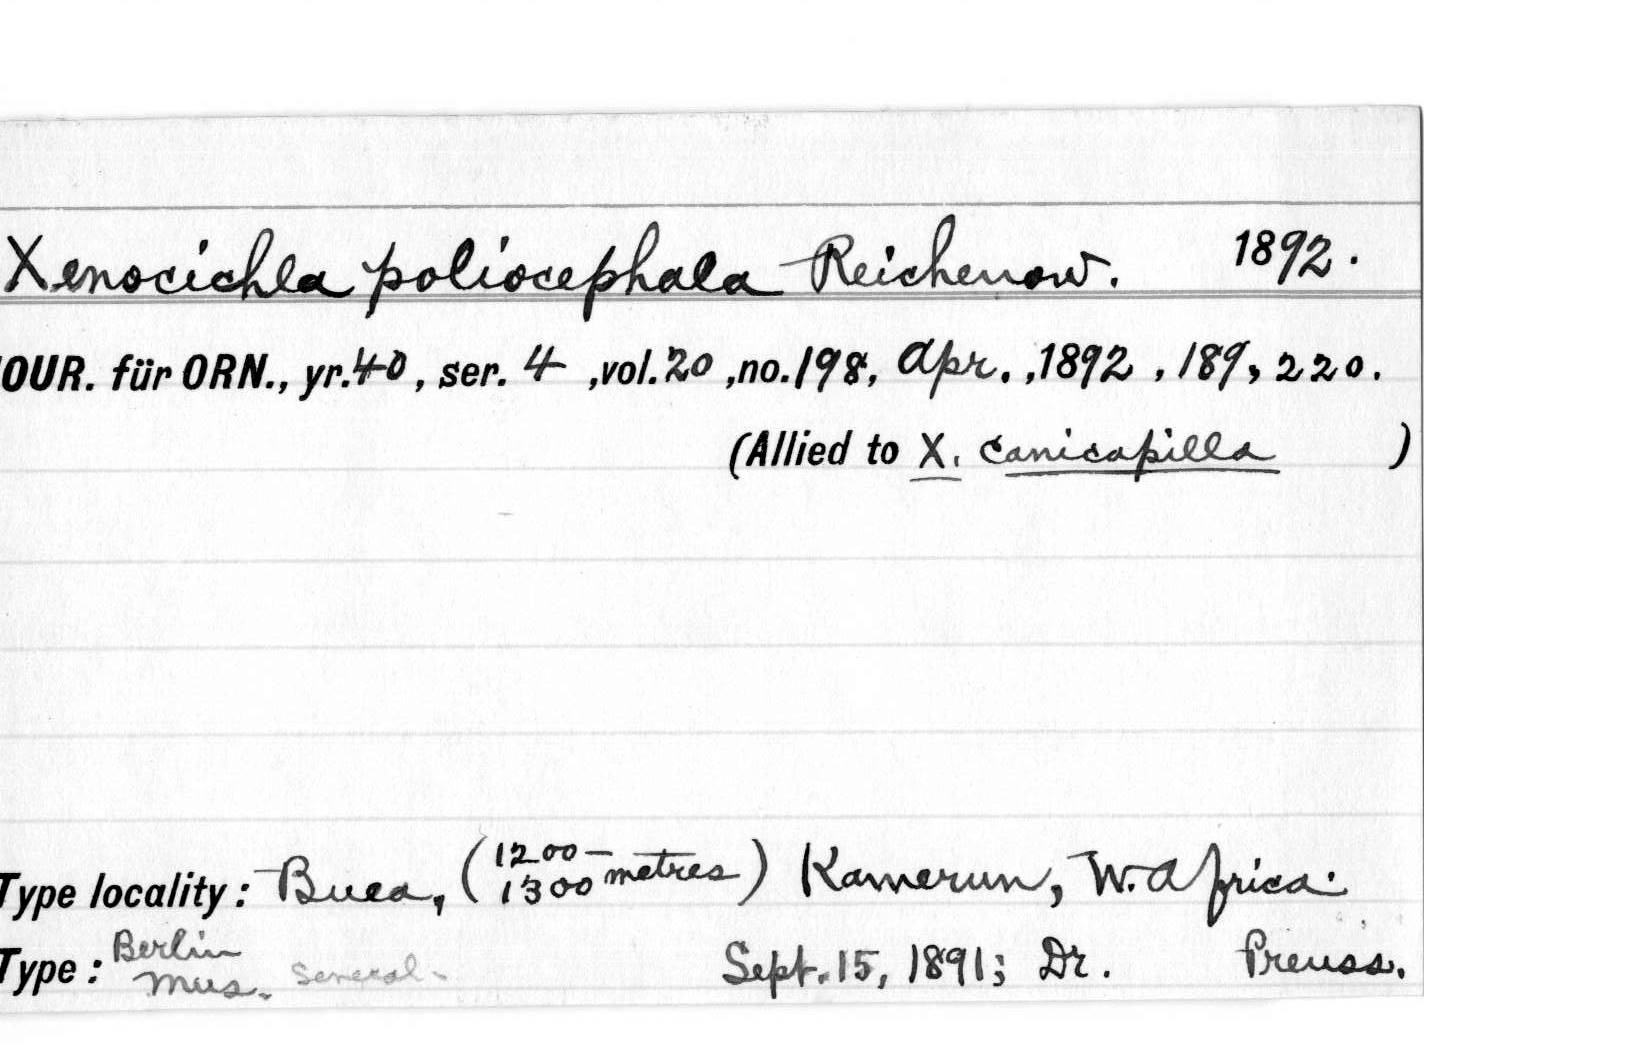 Xenocichla poliocephala Reichenow. 1892.
OUR. für ORN., yr. 40, ser. 4, vol. 20, no. 198, Apr., 1892, 189, 220.
(Allied to X. canicapilla )
Type locality: Buea, (1200–1300 metres) Kamerun, W. Africa.
Type: Berlin Mus. Several. Sept. 15, 1891; Dr. Preuss.